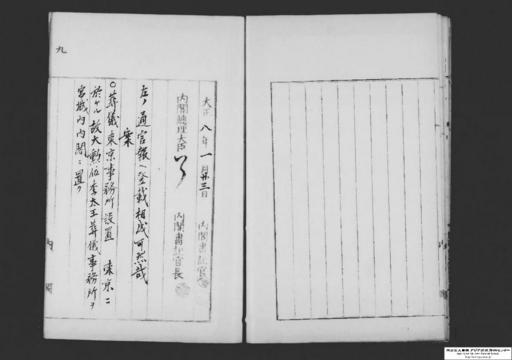 大正八年一月廿三日
内閣書記官
内閣總理大臣
内閣書記官長
左ノ通官報ヘ登載相成可然哉
案
○葬儀東京事務所設置 東京ニ
於ケル故大勲位李太王葬儀事務所ヲ
宮城内内閣ニ置ク
九
内閣